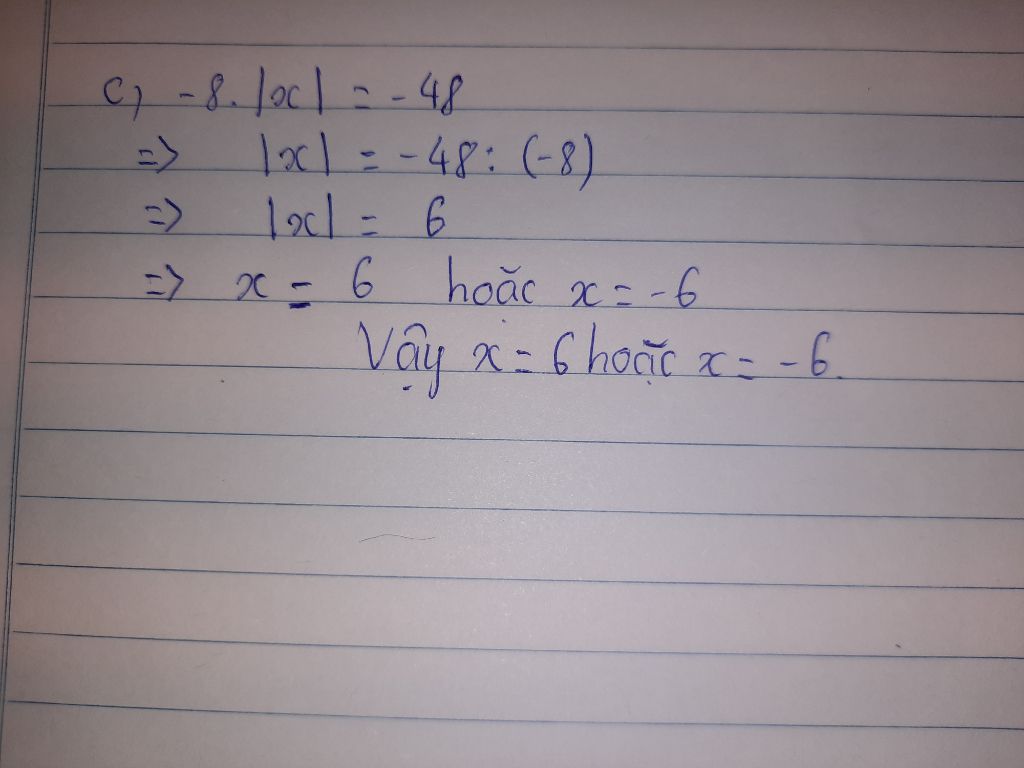 c, -8.|x| = -48
=> |x| = -48: (-8)
=> |x| = 6
=> x = 6 hoặc x = -6
Vậy x = 6 hoặc x = -6.